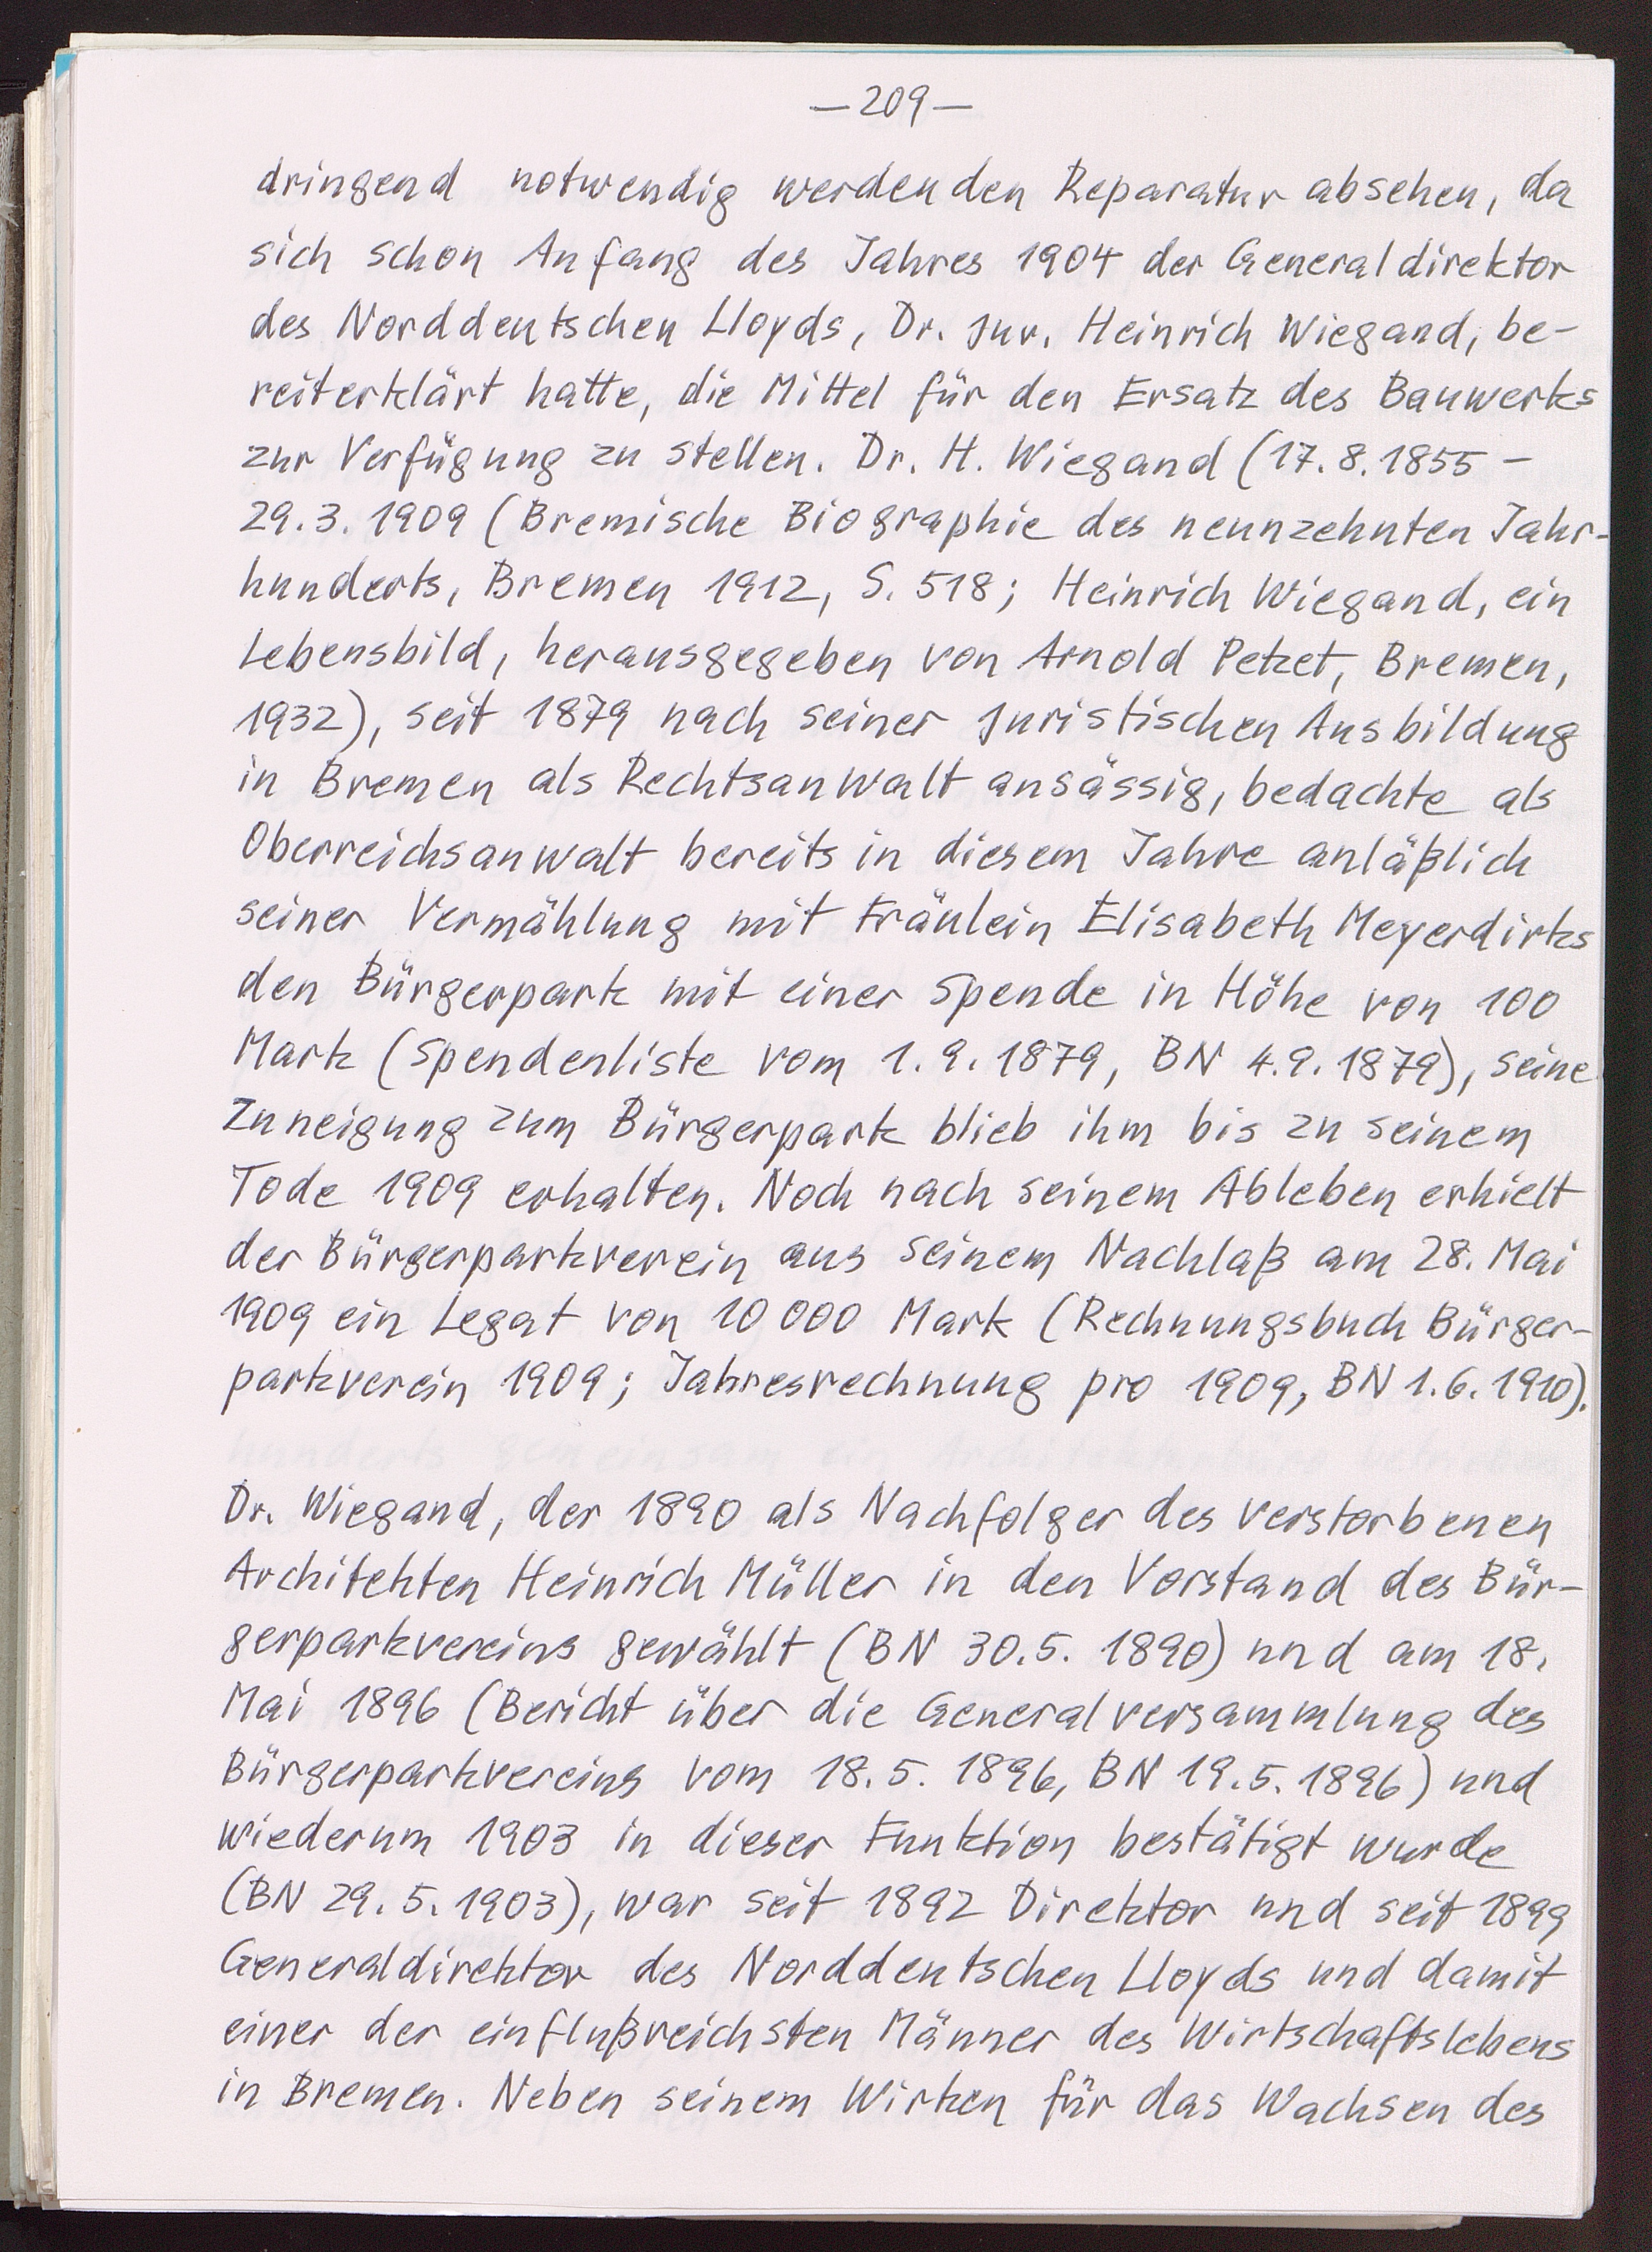 —209—
dringend notwendig werdenden Reparatur absehen, da
sich schon Anfang des Jahres 1904 der Generaldirektor
des Norddeutschen Lloyds, Dr. jur. Heinrich Wiegand, be-
reiterklärt hatte, die Mittel für den Ersatz des Bauwerks
zur Verfügung zu stellen. Dr. H. Wiegand (17.8.1855 –
29.3.1909 (Bremische Biographie des neunzehnten Jahr-
hunderts, Bremen 1912, S. 518; Heinrich Wiegand, ein
Lebensbild, herausgegeben von Arnold Petzet, Bremen,
1932), seit 1879 nach seiner juristischen Ausbildung
in Bremen als Rechtsanwalt ansässig, bedachte als
Oberreichsanwalt bereits in diesem Jahre anläßlich
seiner Vermählung mit Fräulein Elisabeth Meyerdirks
den Bürgerpark mit einer Spende in Höhe von 100
Mark (Spendenliste vom 1.9.1879, BN 4.9.1879), seine
Zuneigung zum Bürgerpark blieb ihm bis zu seinem
Tode 1909 erhalten. Noch nach seinem Ableben erhielt
der Bürgerparkverein aus seinem Nachlaß am 28. Mai
1909 ein Legat von 10 000 Mark (Rechnungsbuch Bürger-
parkverein 1909; Jahresrechnung pro 1909, BN 1.6.1910).
Dr. Wiegand, der 1890 als Nachfolger des verstorbenen
Architekten Heinrich Müller in den Vorstand des Bür-
gerparkvereins gewählt (BN 30.5. 1890) und am 18.
Mai 1896 (Bericht über die Generalversammlung des
Bürgerparkvereins vom 18.5. 1896, BN 19.5.1896) und
wiederum 1903 in dieser Funktion bestätigt wurde
(BN 29.5.1903), war seit 1892 Direktor und seit 1899
Generaldirektor des Norddeutschen Lloyds und damit
einer der einflußreichsten Männer des Wirtschaftslebens
in Bremen. Neben seinem Wirken für das Wachsen des